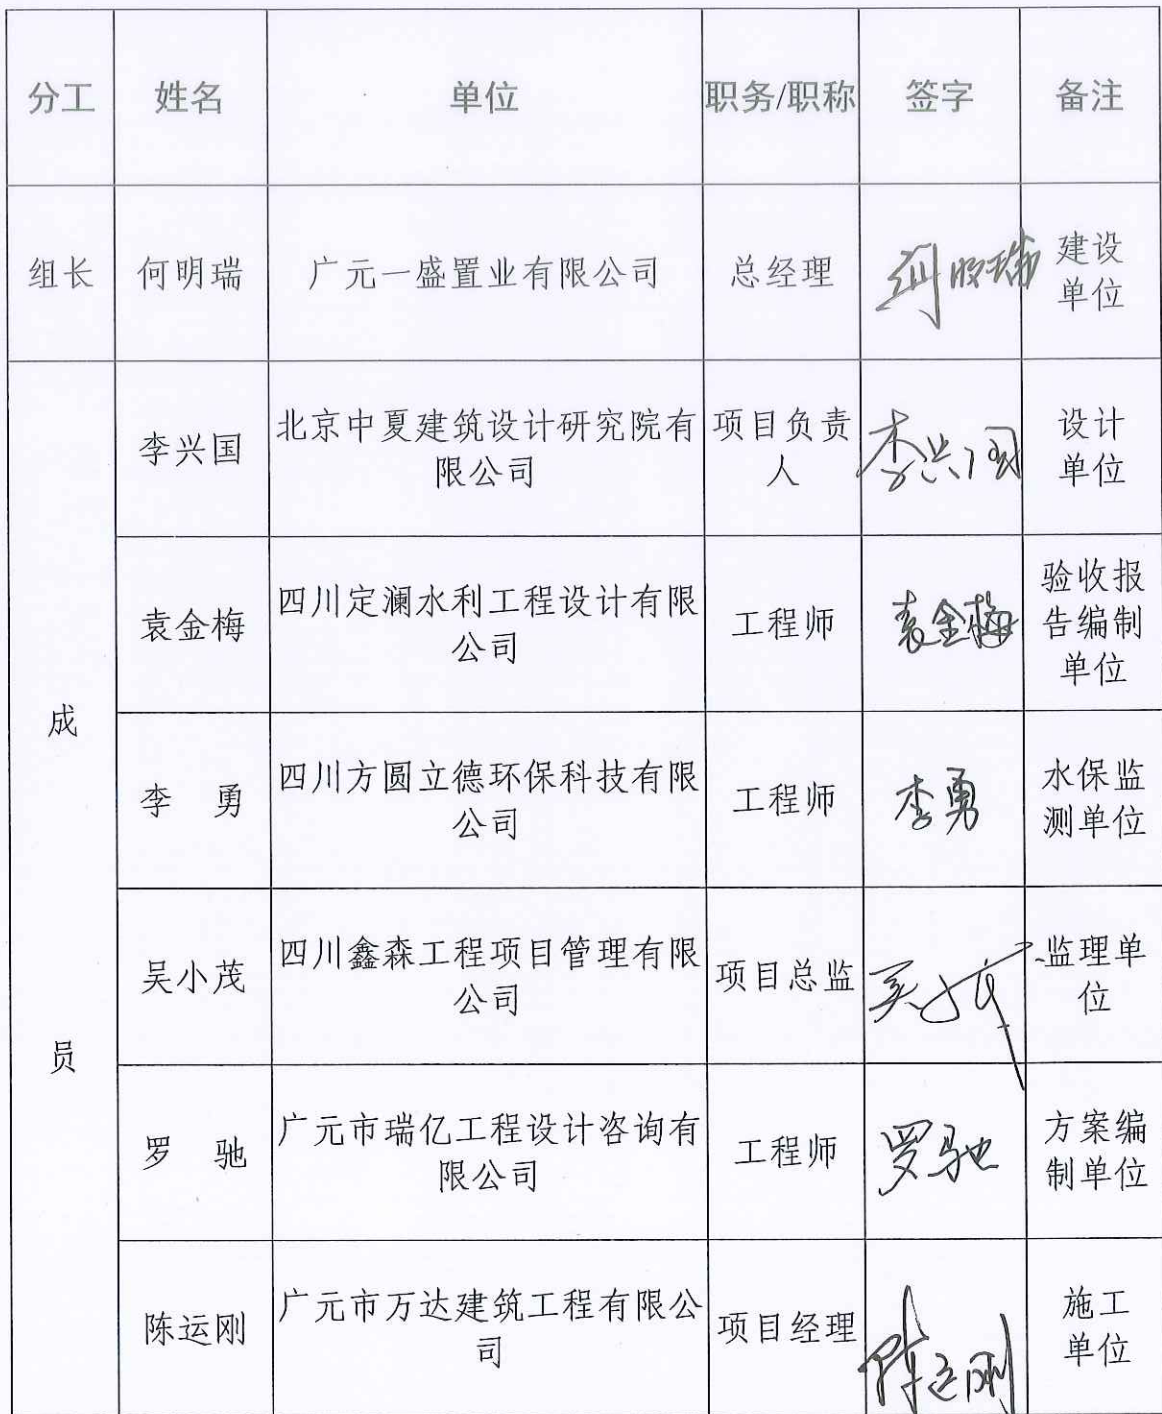 分工 姓名 单位 职务/职称 签字 备注
组长 何明瑞 广元一盛置业有限公司 总经理 建设
单位
成员
李兴国 北京中夏建筑设计研究院有 项目负责 李兴国 设计
限公司 人 单位
袁金梅 四川定澜水利工程设计有限 工程师 袁金梅 验收报
公司 告编制
单位
李 勇 四川方圆立德环保科技有限 工程师 李勇 水保监
公司 测单位
吴小茂 四川鑫森工程项目管理有限 项目总监 监理单
公司 位
罗 驰 广元市瑞亿工程设计咨询有 工程师 罗驰 方案编
限公司 制单位
陈运刚 广元市万达建筑工程有限公 项目经理 陈运刚 施工
司 单位